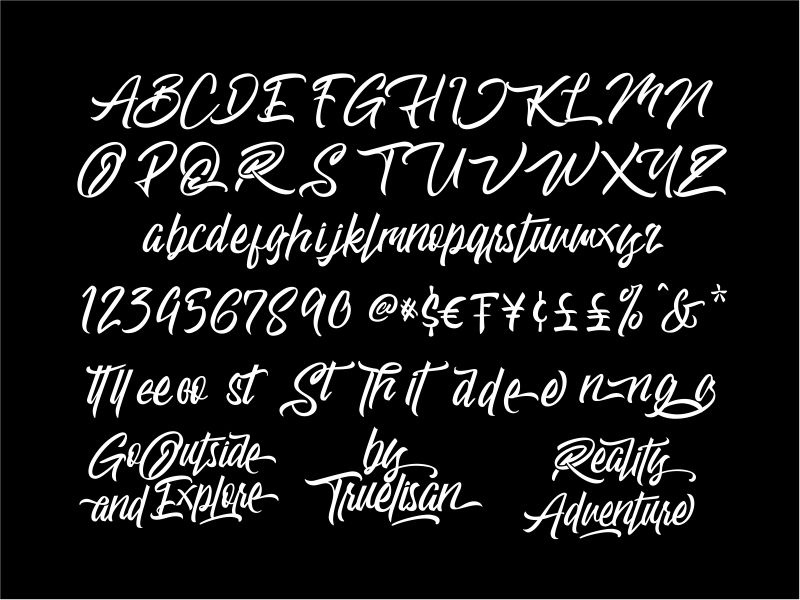 ABCDEFGHIJKLMN
OPQRSTUVWXYZ
abcdefghijklmnopqrstuvwxyz
1234567890 @#$€₮¥¢££%^&*
tt ll ee oo st St Th it a d e e n n g o
Go Outside by Reality
and Explore Truelisan Adventure